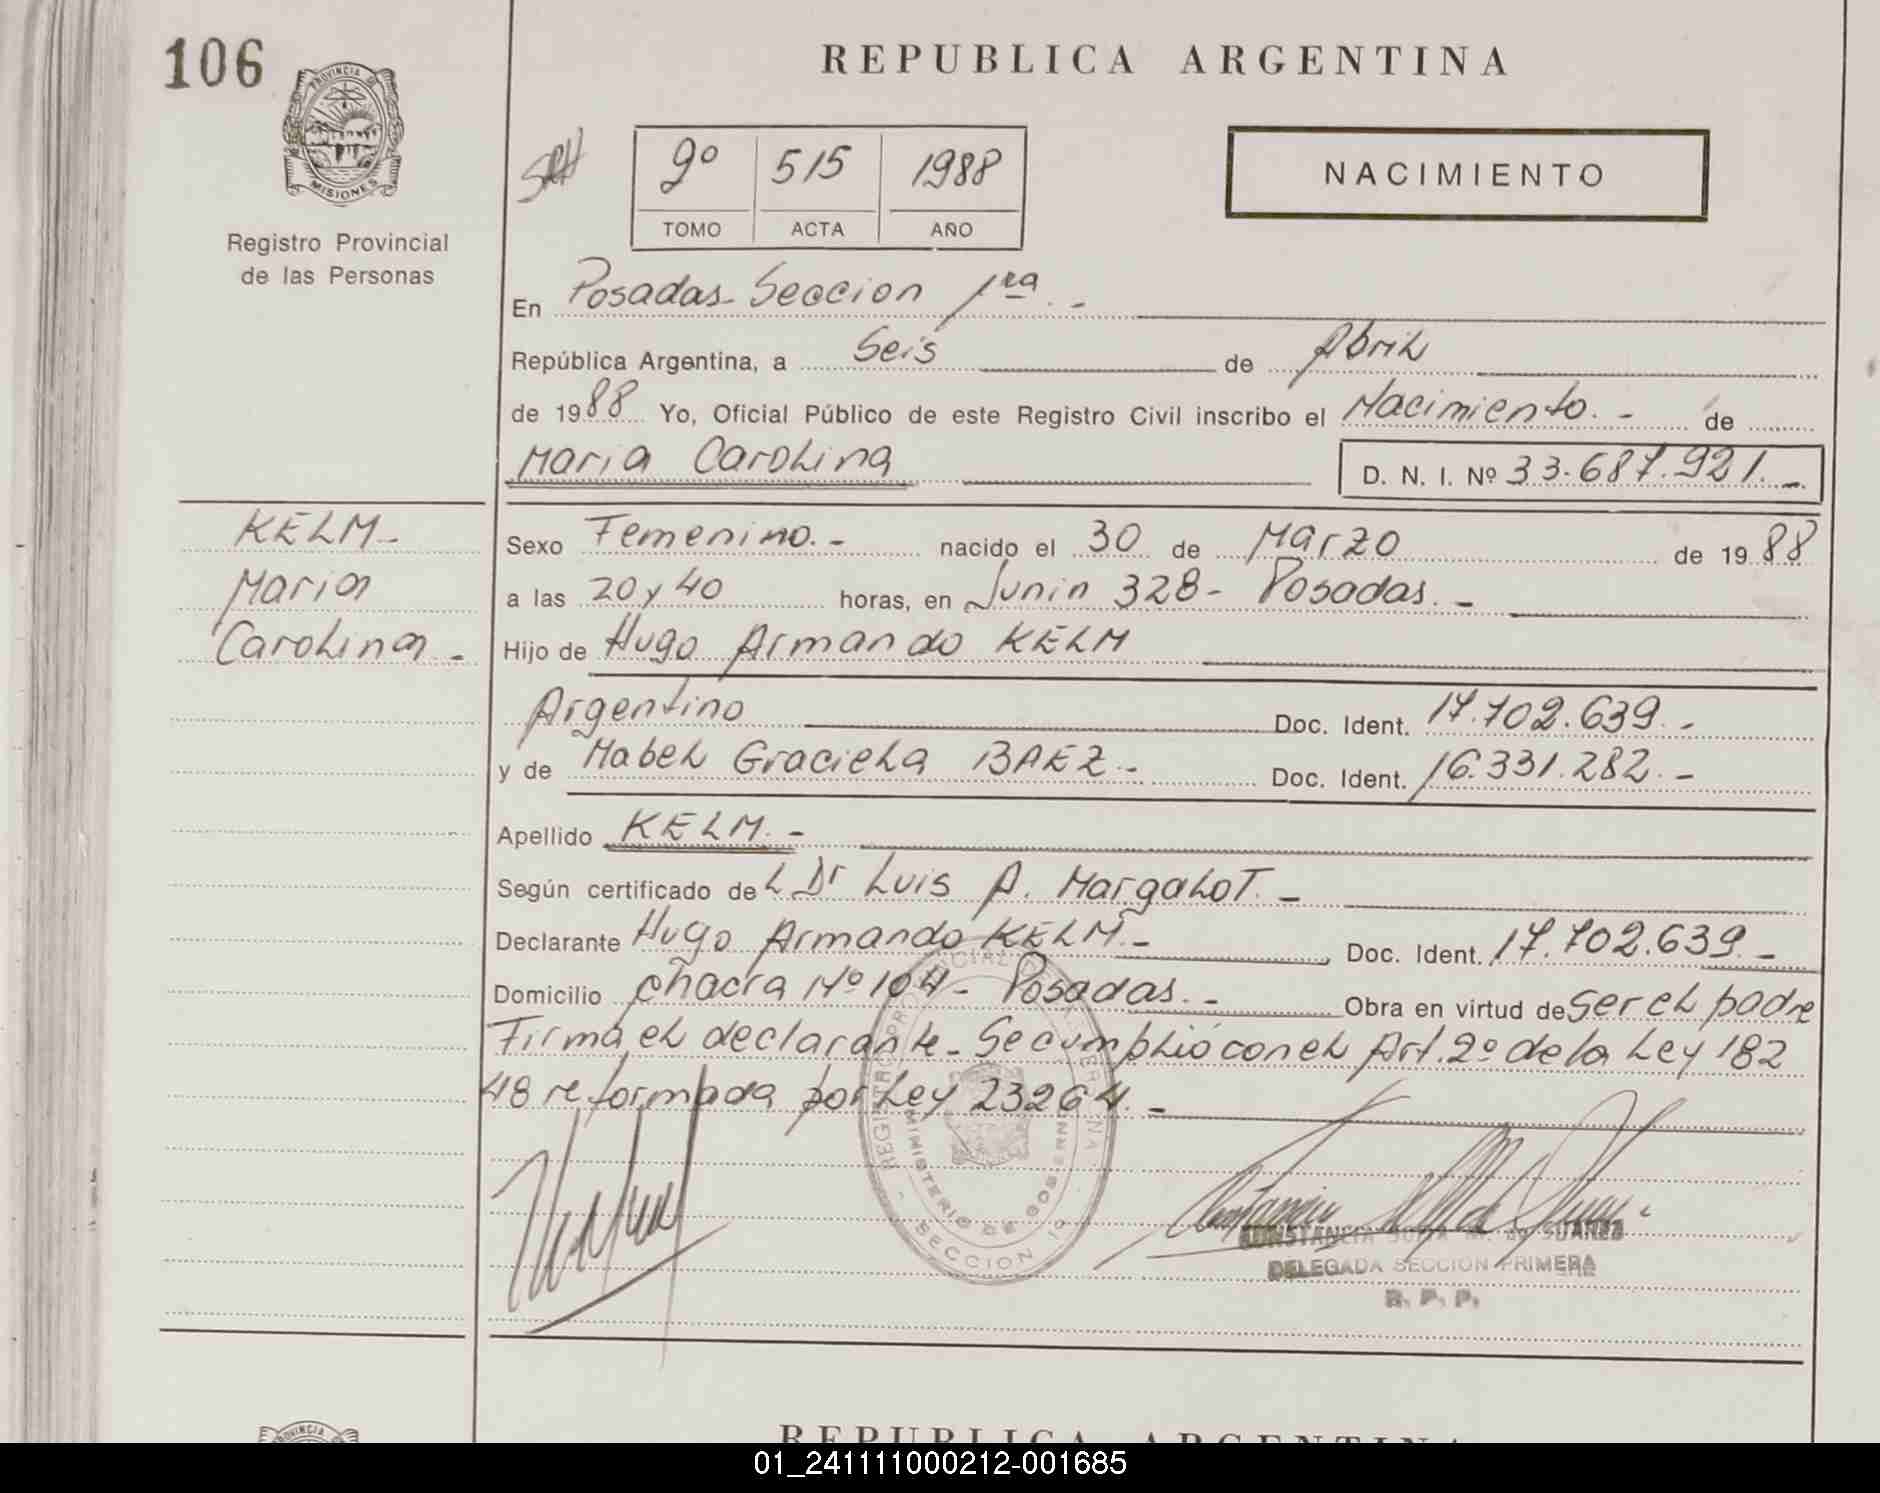 106
REPUBLICA ARGENTINA
PROVINCIA DE
MISIONES
Registro Provincial
de las Personas
9º 515 1988
TOMO ACTA AÑO
NACIMIENTO
En Posadas - Seccion 1ra. -
República Argentina, a Seis de Abril
de 1988 Yo, Oficial Público de este Registro Civil inscribo el Nacimiento. - de
Maria Carolina D. N. I. Nº 33.687.921. -
KELM -
Maria
Carolina -
Sexo Femenino. - nacido el 30 de Marzo de 1988
a las 20 y 40 horas, en Junin 328 - Posadas. -
Hijo de Hugo Armando KELM
Argentino Doc. Ident. 17.702.639. -
y de Mabel Graciela BAEZ - Doc. Ident. 16.331.282. -
Apellido KELM. -
Según certificado del Dr Luis A. Margalot. -
Declarante Hugo Armando KELM. - Doc. Ident. 17.702.639. -
Domicilio chacra Nº 104 - Posadas. - Obra en virtud de ser el padre
Firma el declarante - Se cumplió con el Art. 2º de la Ley 182
48 reformada por Ley 23264. -
MINISTERIO DE GOBIERNO
SECCION 1º
CONSTANCIA M. de SUAREZ
DELEGADA SECCION PRIMERA
R. P. P.
REPUBLICA ARGENTINA
01_241111000212-001685